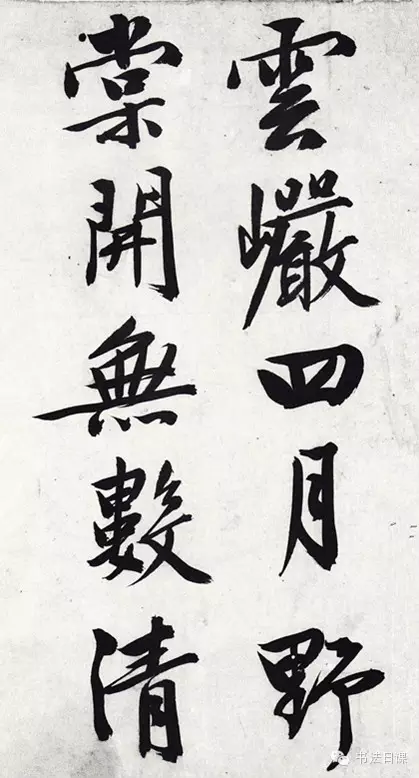 雲巖四月野
棠開無數清
书法日课